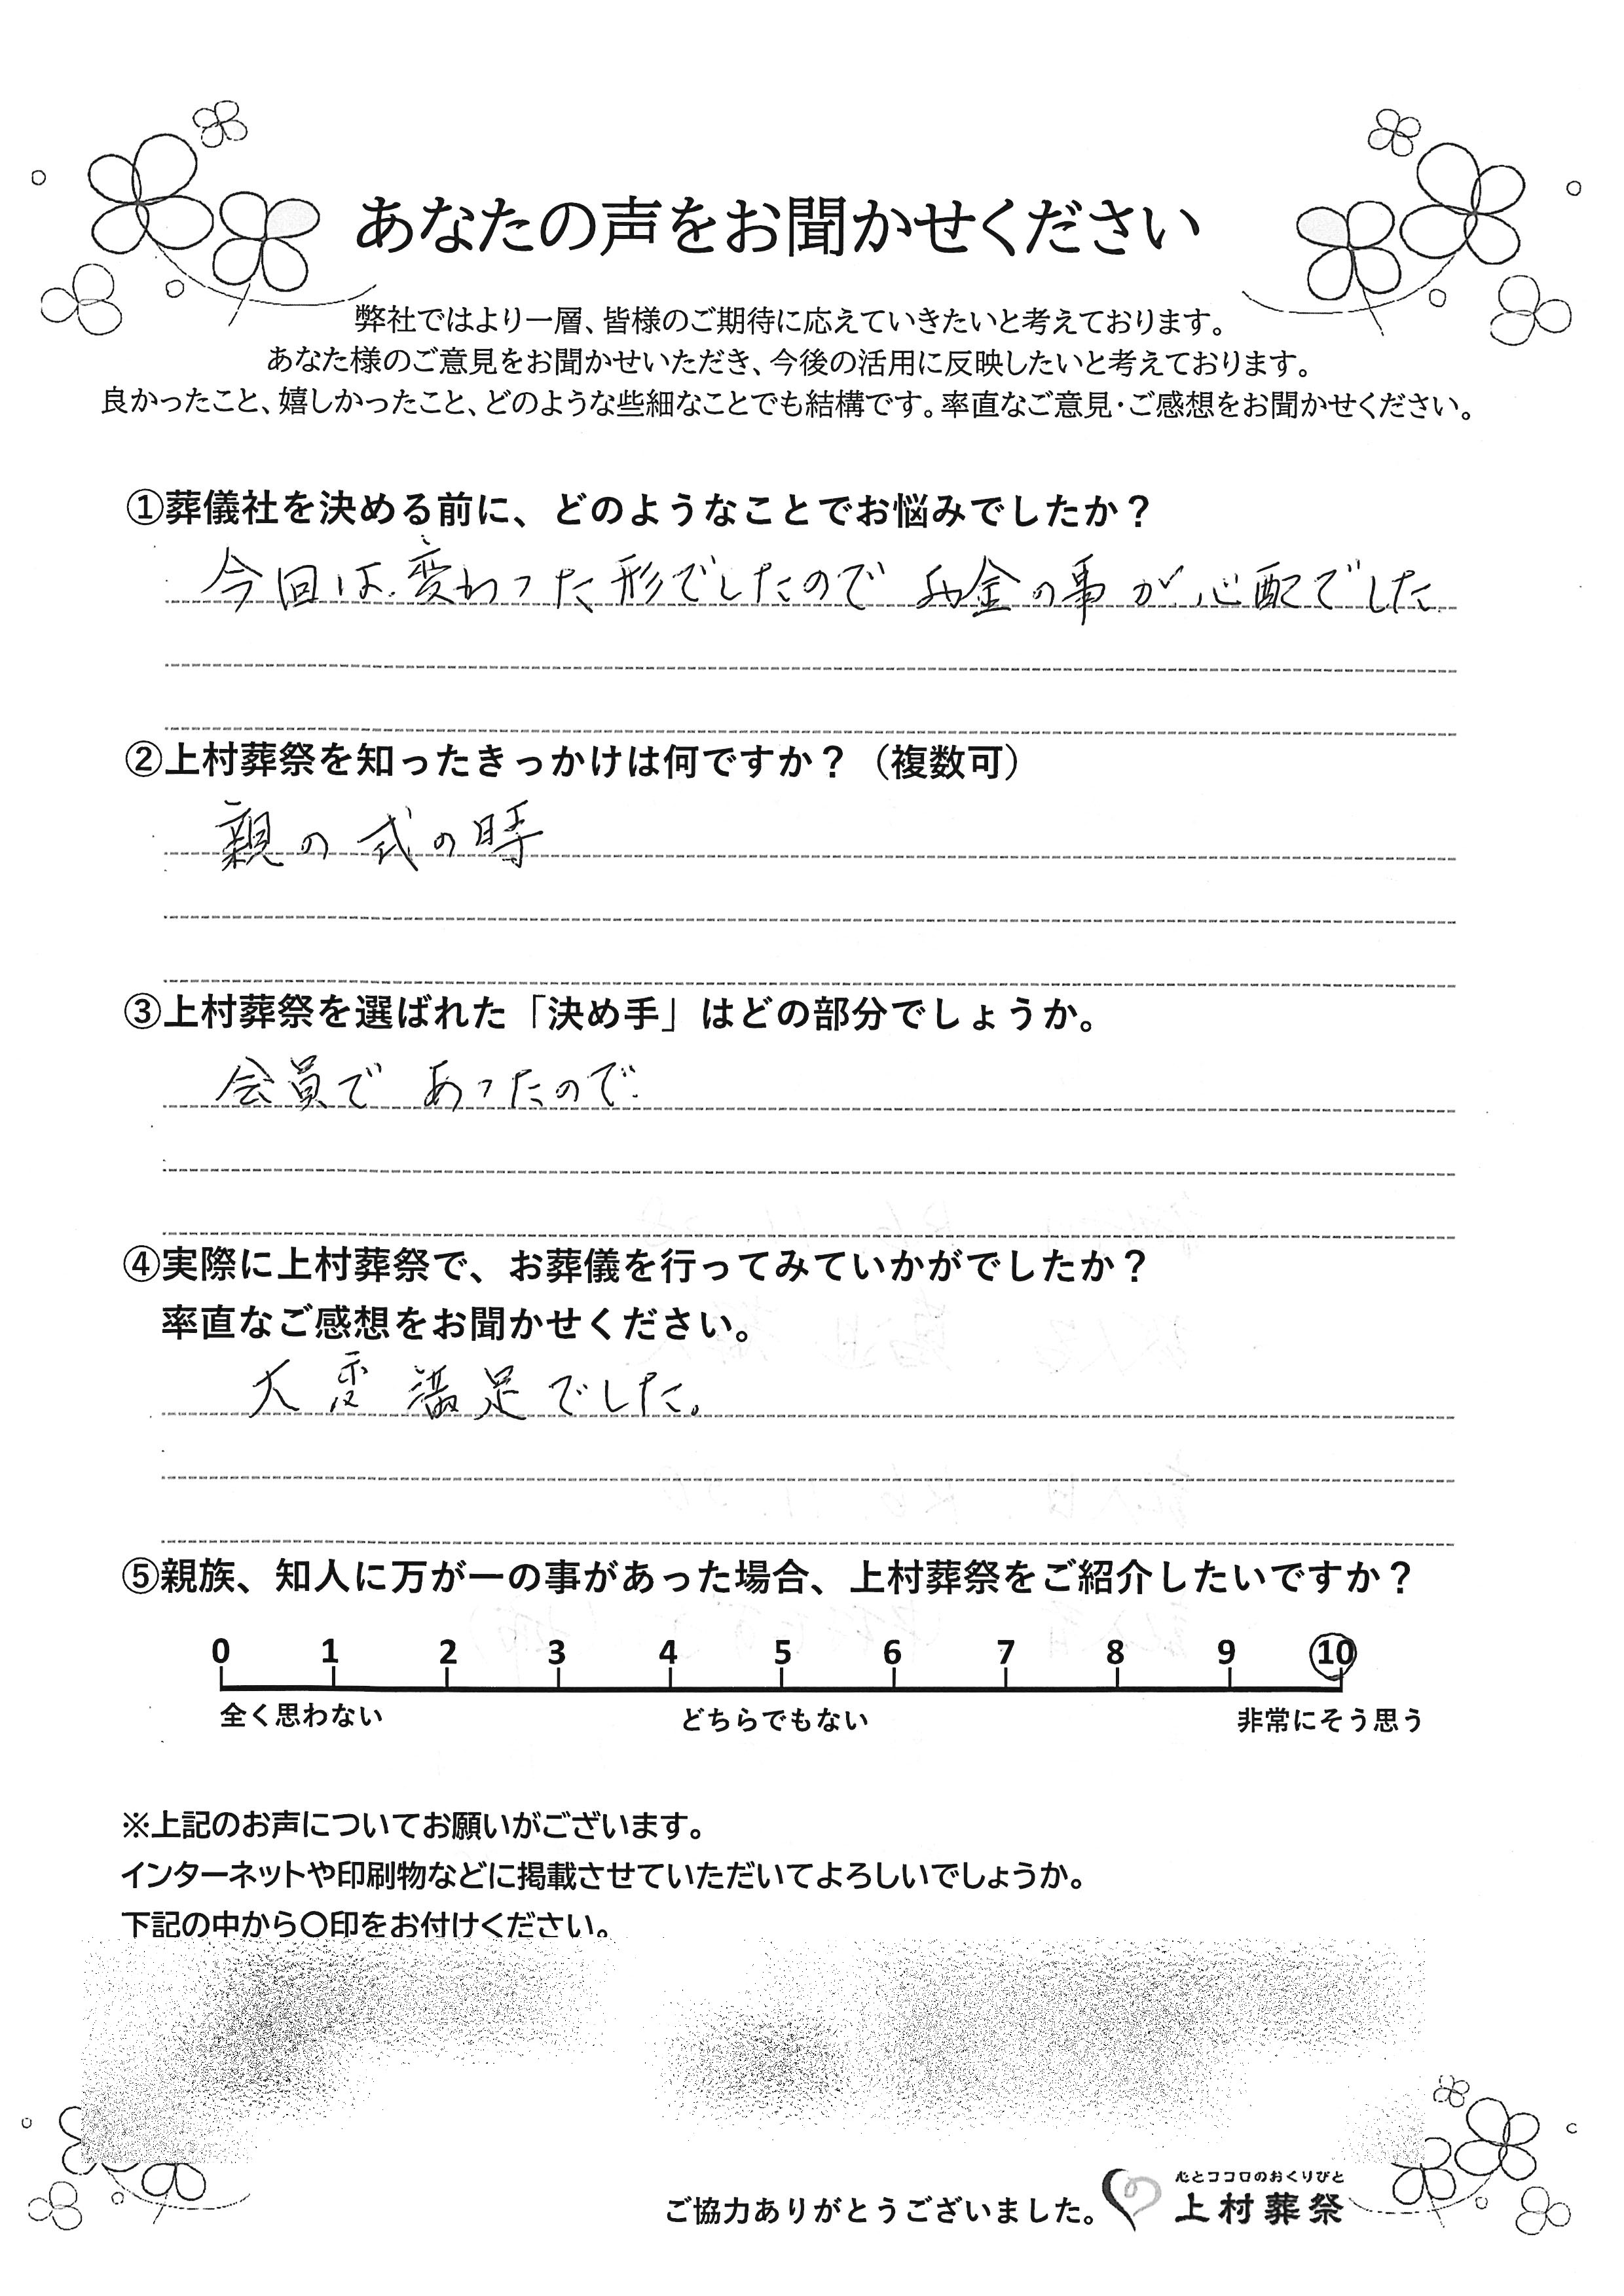 あなたの声をお聞かせください
弊社ではより一層、皆様のご期待に応えていきたいと考えております。
あなた様のご意見をお聞かせいただき、今後の活用に反映したいと考えております。
良かったこと、嬉しかったこと、どのような些細なことでも結構です。率直なご意見・ご感想をお聞かせください。
①葬儀社を決める前に、どのようなことでお悩みでしたか？
今回は変わった形でしたのでお金の事が心配でした
②上村葬祭を知ったきっかけは何ですか？（複数可）
親の式の時
③上村葬祭を選ばれた「決め手」はどの部分でしょうか。
会員であったので
④実際に上村葬祭で、お葬儀を行ってみていかがでしたか？
率直なご感想をお聞かせください。
大変満足でした。
⑤親族、知人に万が一の事があった場合、上村葬祭をご紹介したいですか？
0 1 2 3 4 5 6 7 8 9 10
全く思わない どちらでもない 非常にそう思う
※上記のお声についてお願いがございます。
インターネットや印刷物などに掲載させていただいてよろしいでしょうか。
下記の中から〇印をお付けください。
心とココロのおくりびと
ご協力ありがとうございました。 上村葬祭